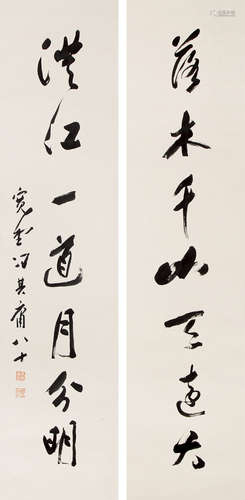 落木千山天遠大
澄江一道月分明
寬堂馮其庸八十